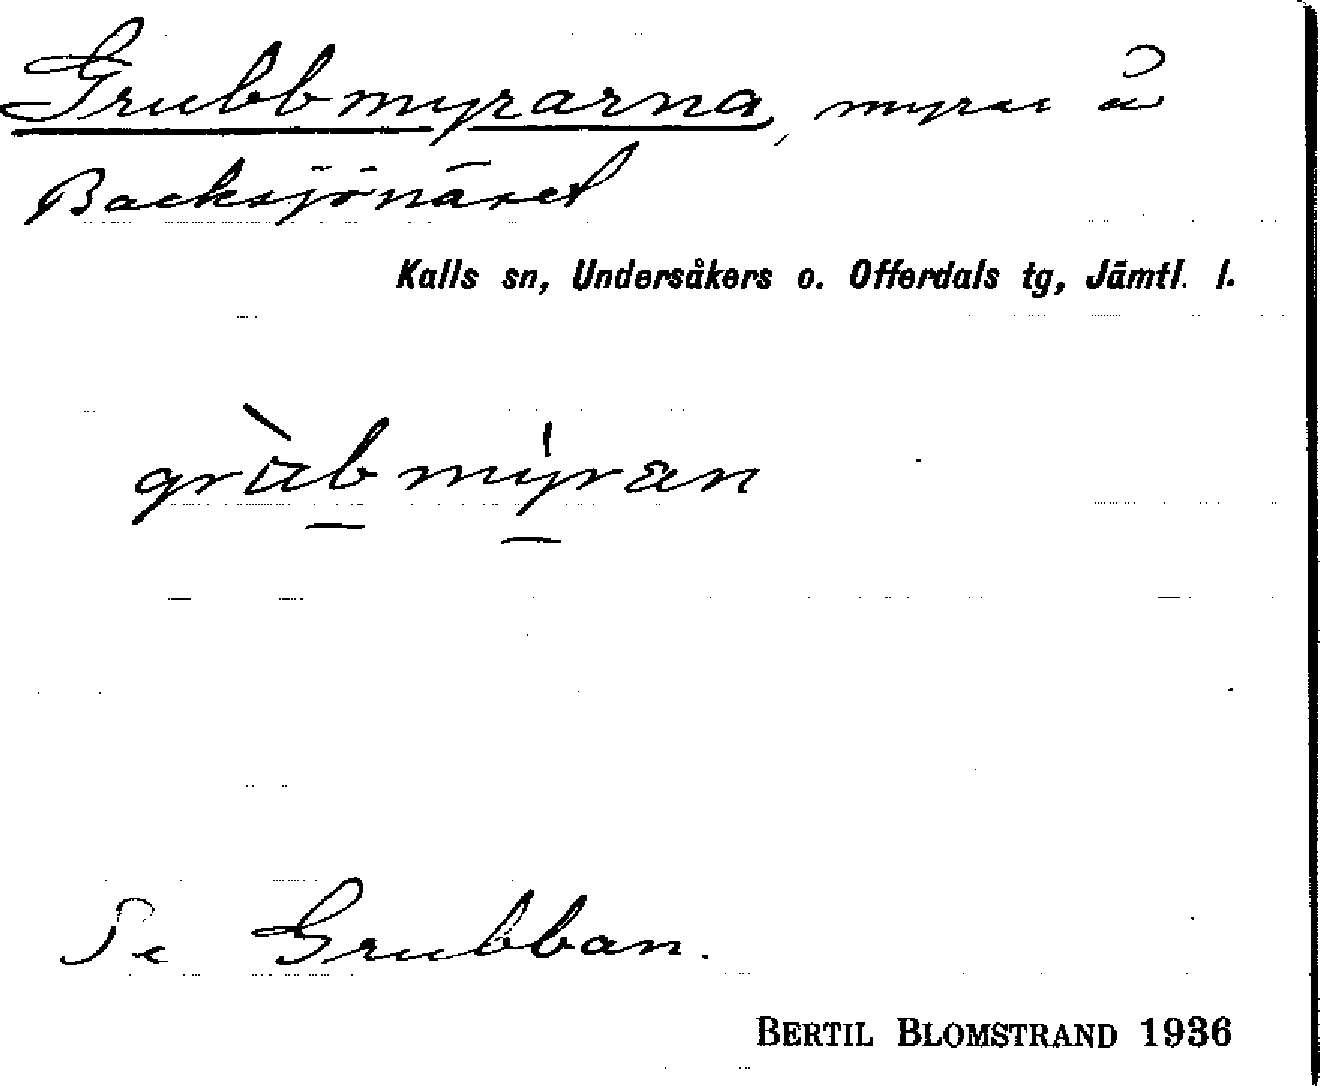 Grubbmyrarna, myrar å
Backsjönäset
Kalls sn, Undersåkers o. Offerdals tg, Jämtl. l.
grùbmýran
Se Grubban.
BERTIL BLOMSTRAND 1936